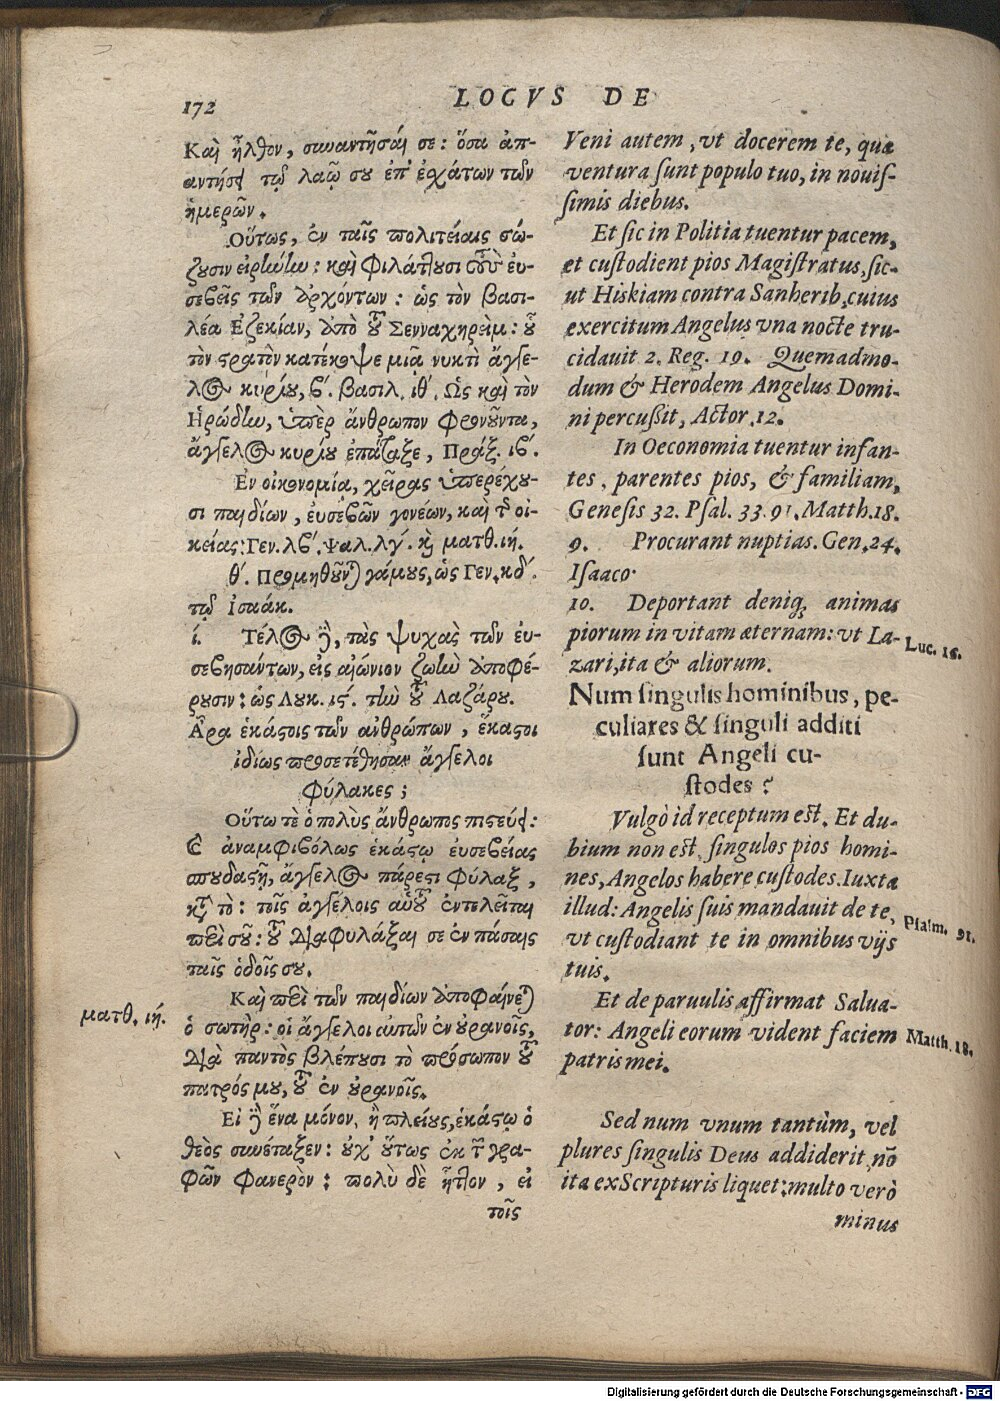 172
LOCVS DE
Καὶ ἦλθον, συναντῆσαί σε: ὅσα ἀπ-
αντήσει τῷ λαῷ σου ἐπ' ἐσχάτων τῶν
ἡμερῶν.
Οὕτως, ἐν ταῖς πολιτείαις σώ-
ζουσιν εἰρήνην: καὶ φυλάττουσι τοὺς εὐ-
σεβεῖς τῶν ἀρχόντων: ὡς τὸν βασι-
λέα Ἐζεκίαν, ἀπὸ τοῦ Σενναχηρεὶμ: οὗ
τὸν στρατὸν κατέκοψε μιᾷ νυκτὶ ἄγγε-
λος κυρίου, β´. βασιλ. ιθ´. Ὡς καὶ τὸν
Ἡρώδην, ὑπὲρ ἄνθρωπον φρονοῦντα,
ἄγγελος κυρίου ἐπάταξε, Πράξ. ιβ´.
Ἐν οἰκονομίᾳ, χεῖρας ὑπερέχου-
σι παιδίων, εὐσεβῶν γονέων, καὶ τῆς οἰ-
κείας: Γεν. λβ´. Ψαλ. λγ´. καὶ ματθ. ιή.
θ´. Προμηθοῦνται γάμους, ὡς Γεν. κδ´.
τῷ ἰσαάκ.
ί. Τέλος δὲ, τὰς ψυχὰς τῶν εὐ-
σεβησάντων, εἰς αἰώνιον ζωὴν ἀποφέ-
ρουσιν: ὡς Λουκ. ις´. τὴν τοῦ Λαζάρου.
Ἆρα ἑκάστοις τῶν ἀνθρώπων, ἕκαστοι
ἰδίως προσετέθησαν ἄγγελοι
φύλακες;
Οὕτω τὲ ὁ πολὺς ἄνθρωπος πιστεύει:
καὶ ἀναμφιβόλως ἑκάστῳ εὐσεβείας
σπουδαστῇ, ἄγγελος πάρεστι φύλαξ,
κατὰ τὸ: τοῖς ἀγγέλοις αὐτοῦ ἐντελεῖται
περὶ σοῦ: τοῦ διαφυλάξαι σε ἐν πάσαις
ταῖς ὁδοῖς σου.
Καὶ περὶ τῶν παιδίων ἀποφαίνεται
ὁ σωτὴρ: οἱ ἄγγελοι αὐτῶν ἐν οὐρανοῖς,
διὰ παντὸς βλέπουσι τὸ πρόσωπον τοῦ
πατρός μου, τοῦ ἐν οὐρανοῖς.
Εἰ δὲ ἕνα μόνον, ἢ πλείους, ἑκάστῳ ὁ
θεὸς συνέταξεν: οὐχ' οὕτως ἐκ τῶν γρα-
φῶν φανερὸν: πολὺ δὲ ἧττον, εἰ
τοῖς
ματθ. ιή.
Veni autem, vt docerem te, quæ
ventura sunt populo tuo, in nouis-
simis diebus.
Et sic in Politia tuentur pacem,
et custodient pios Magistratus, sic-
ut Hiskiam contra Sanherib, cuius
exercitum Angelus vna nocte tru-
cidauit 2. Reg. 19. Quemadmo-
dum & Herodem Angelus Domi-
ni percußit, Actor. 12.
In Oeconomia tuentur infan-
tes, parentes pios, & familiam,
Genesis 32. Psal. 33. 91. Matth. 18.
9. Procurant nuptias. Gen. 24.
Isaaco.
10. Deportant deniq; animas
piorum in vitam æternam: vt La-
zari, ita & aliorum.
Luc. 16.
Num singulis hominibus, pe-
culiares & singuli additi
sunt Angeli cu-
stodes?
Vulgò id receptum est. Et du-
bium non est, singulos pios homi-
nes, Angelos habere custodes. Iuxta
illud: Angelis suis mandauit de te,
vt custodiant te in omnibus vijs
tuis.
Psalm. 91.
Et de paruulis affirmat Salua-
tor: Angeli eorum vident faciem
patris mei.
Matth. 18.
Sed num vnum tantùm, vel
plures singulis Deus addiderit, nō
ita ex Scripturis liquet: multo verò
minus
Digitalisierung gefördert durch die Deutsche Forschungsgemeinschaft - DFG